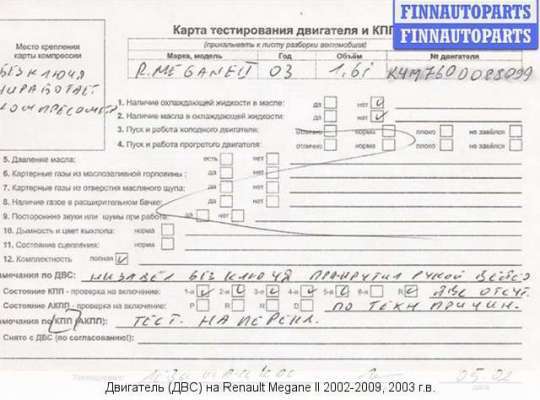 FINNAUTOPARTS
FINNAUTOPARTS
Карта тестирования двигателя и КПП
(прикалывать к листу разборки автомобиля)
Место крепления
карты компрессии
Марка, модель Год Объём № двигателя
R.MEGANE II 03 1,6i K4M760D088099
БЕЗ КЛЮЧА
1. Наличие охлаждающей жидкости в масле: да нет
2. Наличие масла в охлаждающей жидкости: да нет
3. Пуск и работа холодного двигателя: отлично норма плохо не завёлся
4. Пуск и работа прогретого двигателя: отлично норма плохо не завёлся
5. Давление масла: есть нет
6. Картерные газы из маслозаливной горловины: да нет
7. Картерные газы из отверстия масляного щупа: да нет
8. Наличие газов в расширительном бачке: да нет
9. Посторонние звуки или шумы при работе: да нет
10. Дымность и цвет выхлопа: норма
11. Состояние сцепления: норма
12. Комплектность полная
мечания по ДВС: БЕЗ КЛЮЧА ПРОКРУТИЛ РУКОЙ
Состояние КПП - проверка на включение: 1-я 2-я 3-я 4-я 5-я R ДВС ОТСУТ.
Состояние АКПП - проверка на включение: P R D ПО ТЕХН ПРИЧИН.
мечания по КПП (АКПП): ТЕСТ. НА ПЕРЕКЛ.
Снято с ДВС (по согласованию!):
05.02
Двигатель (ДВС) на Renault Megane II 2002-2009, 2003 г.в.